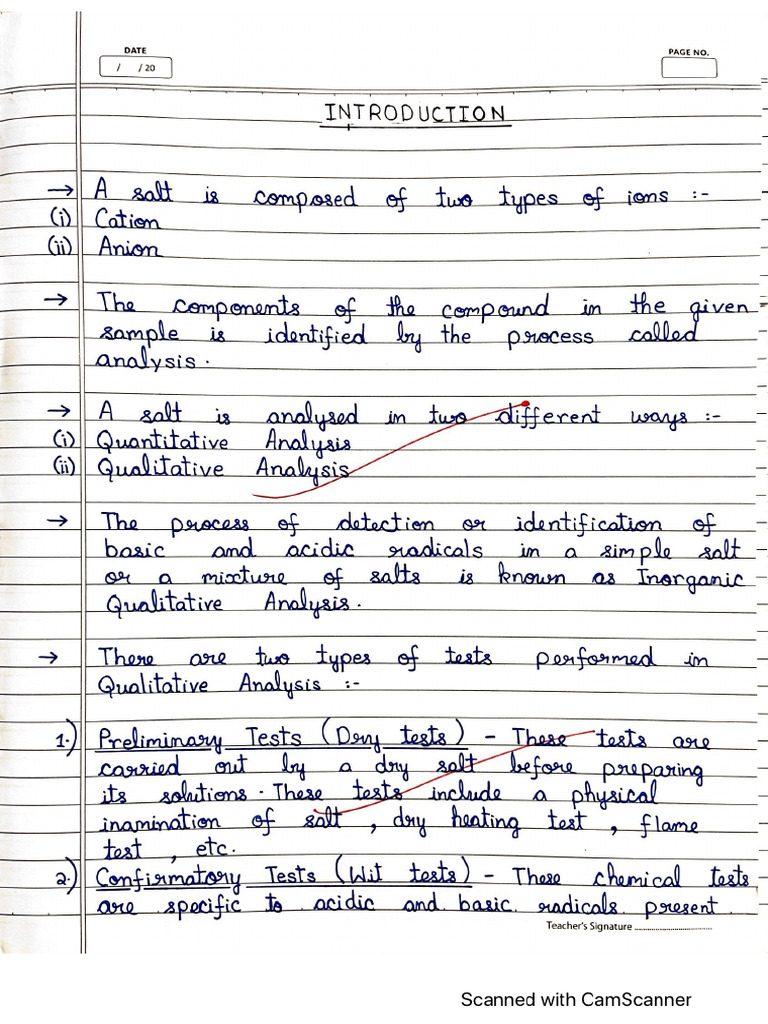 DATE
/ / 20
PAGE NO.
INTRODUCTION
→ A salt is composed of two types of ions :-
(i) Cation
(ii) Anion
→ The components of the compound in the given
sample is identified by the process called
analysis.
→ A salt is analysed in two different ways :-
(i) Quantitative Analysis
(ii) Qualitative Analysis
→ The process of detection or identification of
basic and acidic radicals in a simple salt
or a mixture of salts is known as Inorganic
Qualitative Analysis.
→ There are two types of tests performed in
Qualitative Analysis :-
1.) Preliminary Tests (Dry tests) - These tests are
carried out by a dry salt before preparing
its solutions. These tests include a physical
inamination of salt , dry heating test , flame
test , etc.
2.) Confirmatory Tests (Wit tests) - These chemical tests
are specific to acidic and basic radicals present
Teacher's Signature
Scanned with CamScanner